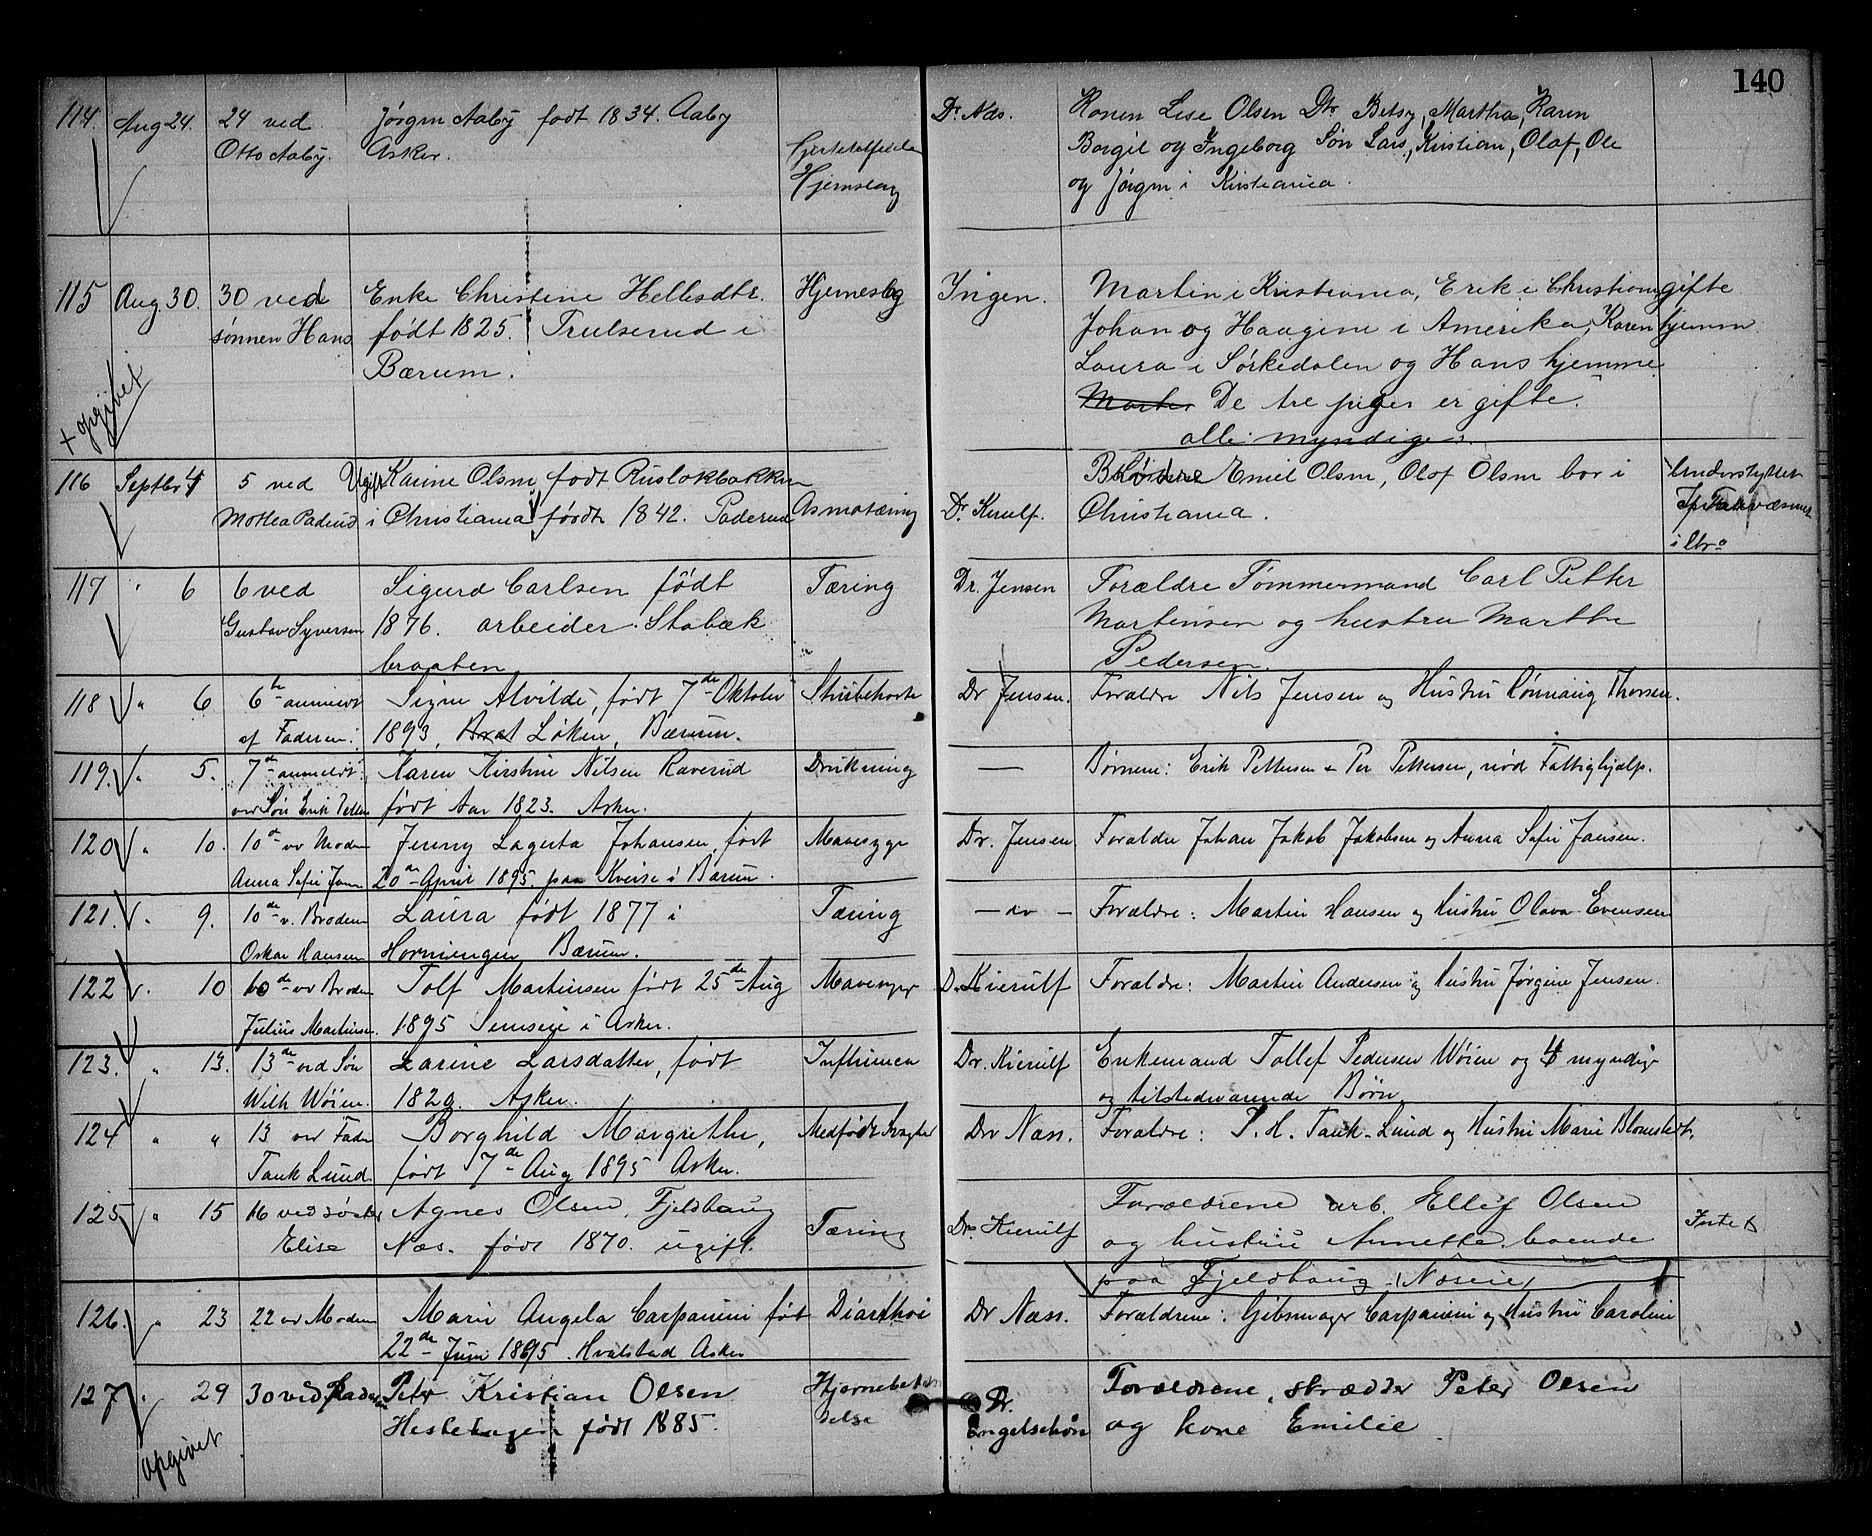 140
114. Aug 24. 24 ved Jørgen Aaby født 1834. Aaby Dr. Næs. Konen Lise Olsen Dtr Betsy, Martha, Karen
Otto Aaby. Asker. Borgil og Ingeborg Søn Lars, Kristian, Olaf, Ole
Hjernslag og Jørgen i Kristiania.
115 Aug. 30. 30 ved Enke Christine Hellesdtr. Hjerneslag Ingen. Martin i Kristiania, Erik i Christiania gifte
sønnen Hans født 1825. Trulserud i Johan og Haagine i Amerika, Karen hjemm
Bærum. Laura i Sørkedalen og Hans hjemme
+ opgivet De tre piger er gifte.
alle myndige.
116 Septbr 4 5 ved Ugift Karine Olsen født Ruslokbakken Brødre Emil Olsen, Olof Olsen bor i Understyttet
Mathea Paderud i Christiania født 1842. Paderud Dr. Kierulf. Christiania. Fattivæsenet
i Chra
117 " 6 6 ved Sigurd Carlsen født Tæring Dr. Jensen Forældre Tømmermand Carl Petter
Gustav Syversen 1876. arbeider. Stabæk Martinsen og hustru Marthe
braaten Pedersen.
118 " 6 6te anmeldt Signe Alvilde, født 7de Oktober Strubehoste Dr Jensen. Forældre Nils Jensen og Hustru Rønnaug Thorsen.
af Faderen. 1893, Løken, Bærum.
119. " 5. 7de anmeldt Karen Kirstine Nilsen Raverud Drukning — Børnene: Erik Pettersen & Per Pettersen, nød Fattighjælp.
ved Søn Erik Petters født Aar 1823. Asker.
120 " 10. 10de ved Moderen Jenny Lagerta Johansen, født Mavesyge Dr. Jensen Forældre Johan Jakob Jakobsen og Anna Sofie Jansen.
Anna Sofie Jansen 20de April 1895 paa Kveise i Bærum.
121. " 9. 10de v. Broderen Laura født 1877 i Tæring — do — Forældre: Martin Hansen og Hustru Olava Evensen
Oskar Hansen Horningen Bærum.
122 " 10 10de ved Broderen Tolf Martinsen født 25de Aug Mavesyge D. Kierulf Forældre: Martin Andersen og Hustru Jørgine Jensen.
Julius Martinsen. 1895 Semseie i Asker.
123. " 13. 13de ved Søn Larine Larsdatter, født Influenca Dr. Kierulf Enkemand Tollef Pedersen Wøien og 4 myndige
Wilh Wøien. 1829. Asker. og tilstedeværende Børn
124 " " 13 ved Fader Borghild Margrethe, Medfødt Svaghed Dr Næss. Forældre: P. H. Tank-Lund og Hustru Marie Blomstedt.
Tank Lund. født 7de Aug 1895 Asker.
125 " 15 16 ved søster Agnes Olsen, Fjeldhaug Tæring Dr. Kierulf Forældrene arb. Ellef Olsen
Elise Næs. født 1870. ugift. og hustru Annette boende
paa Fjeldhaug (Næseie)
126. " 23 22 ved Moderen Marie Angela Carpanini født Diarrhoi Dr Næss. Forældrene: Gibsmager Carpanini og Hustru Caroline
22de Juni 1895. Hvalstad Asker
127 " 29 30 ved Faderen Peter Kristian Olsen Hjernebetændelse Dr. Engelschøn Forældrene, skrædder Peter Olsen
Hestehagen født 1885. og kone Emilie
opgivet